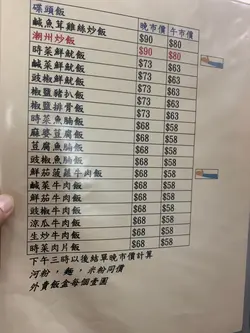 碟頭飯 晚市價 午市價
鹹魚茸雞絲炒飯 $90 $80
潮州炒飯 $90 $80
時菜鮮魷飯 $73 $63
鹹菜鮮魷飯 $73 $63
豉椒鮮魷飯 $73 $63
椒鹽豬扒飯 $73 $63
椒鹽排骨飯 $73 $63
時菜魚腩飯 $68 $58
麻婆豆腐飯 $68 $58
豆腐魚腩飯 $68 $58
豉椒魚腩飯 $68 $58
鮮茄菠蘿牛肉飯 $68 $58
鹹菜牛肉飯 $68 $58
鮮茄牛肉飯 $68 $58
豉椒牛肉飯 $68 $58
涼瓜牛肉飯 $68 $58
生炒牛肉飯 $68 $58
時菜肉片飯 $68 $58
下午三時以後結單晚市價計算
河粉，麵，米粉同價
外賣飯盒每個壹圓